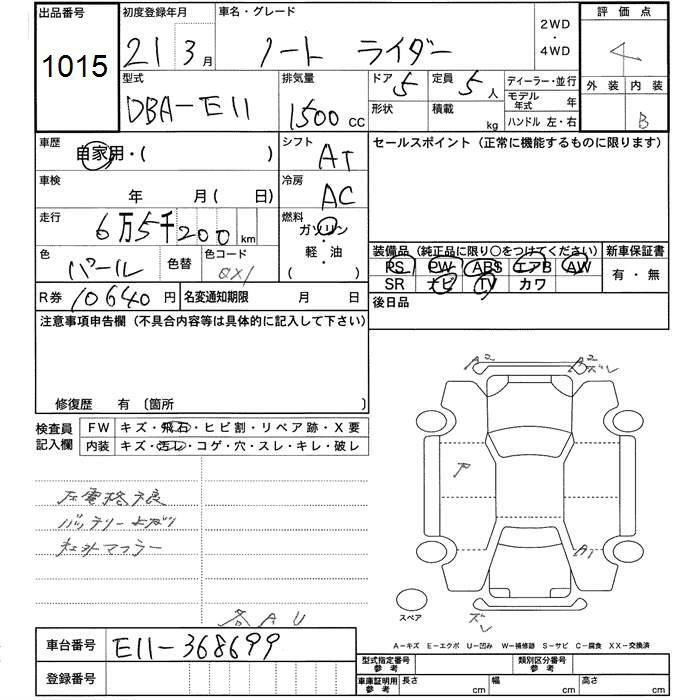 出品番号 初度登録年月 車名・グレード 2WD・4WD 評価点
1015 21 3月 ノート ライダー 4
型式 排気量 ドア 5 定員 5人 ディーラー・並行 外装 内装
DBA-E11 1500cc 形状 積載 kg モデル年式 年 B
ハンドル 左・右
車歴 自家用・( ) シフト AT セールスポイント (正常に機能するものに限ります)
車検 年 月( 日) 冷房 AC
走行 6万5千200km 燃料 ガソリン・軽・油 ( )
色 パール 色替 色コード QX1
装備品 (純正品に限り○をつけてください) 新車保証書
PS PW ABS エアB AW 有・無
SR ナビ TV カワ
R券 10640円 名変通知期限 月 日 後日品
注意事項申告欄 (不具合内容等は具体的に記入して下さい)
修復歴 有 〔箇所 〕
A2 A2 ズレ
検査員記入欄 FW キズ・飛石・ヒビ割・リペア跡・X要
内装 キズ・汚レ・コゲ・穴・スレ・キレ・破レ
ア
左電格不良
バッテリー上ガリ
社外マフラー A1
スペア ズレ
各AU
A-キズ E-エクボ U-凹み W-補修跡 S-サビ C-腐食 XX-交換済
車台番号 E11-368699
登録番号
型式指定番号 参考 類別区分番号 参考
車庫証明用 参考 長さ cm 幅 cm 高さ cm